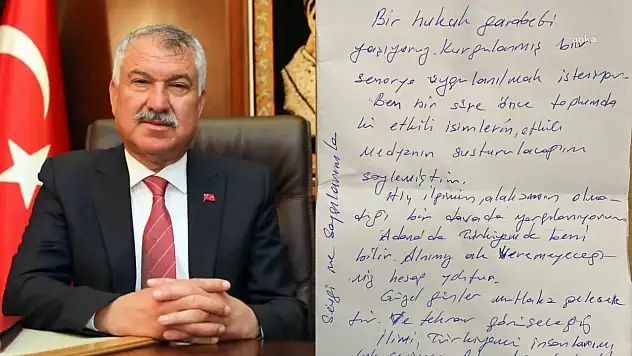 Bir hukuk garabeti
yaşıyoruz. Kurgulanmış bir
senaryo uygulanılmak isteniyor.
Ben bir süre önce toplumda
ki etkili isimlerin, etkili
medyanın susturulacağını
söylemiştim.
Hiç ilgimin, alakamın olma
dığı bir davada yargılanıyorum.
Adana'da Türkiyemde beni
bilir. Alnımız ak veremeyeceği
miz hesap yoktur.
Güzel günler mutlaka gelecek
tir. Ve tekrar görüşeceğiz
ilimi, Türkiyemi insanlarımı,
Sevgi ve saygılarımla
anka